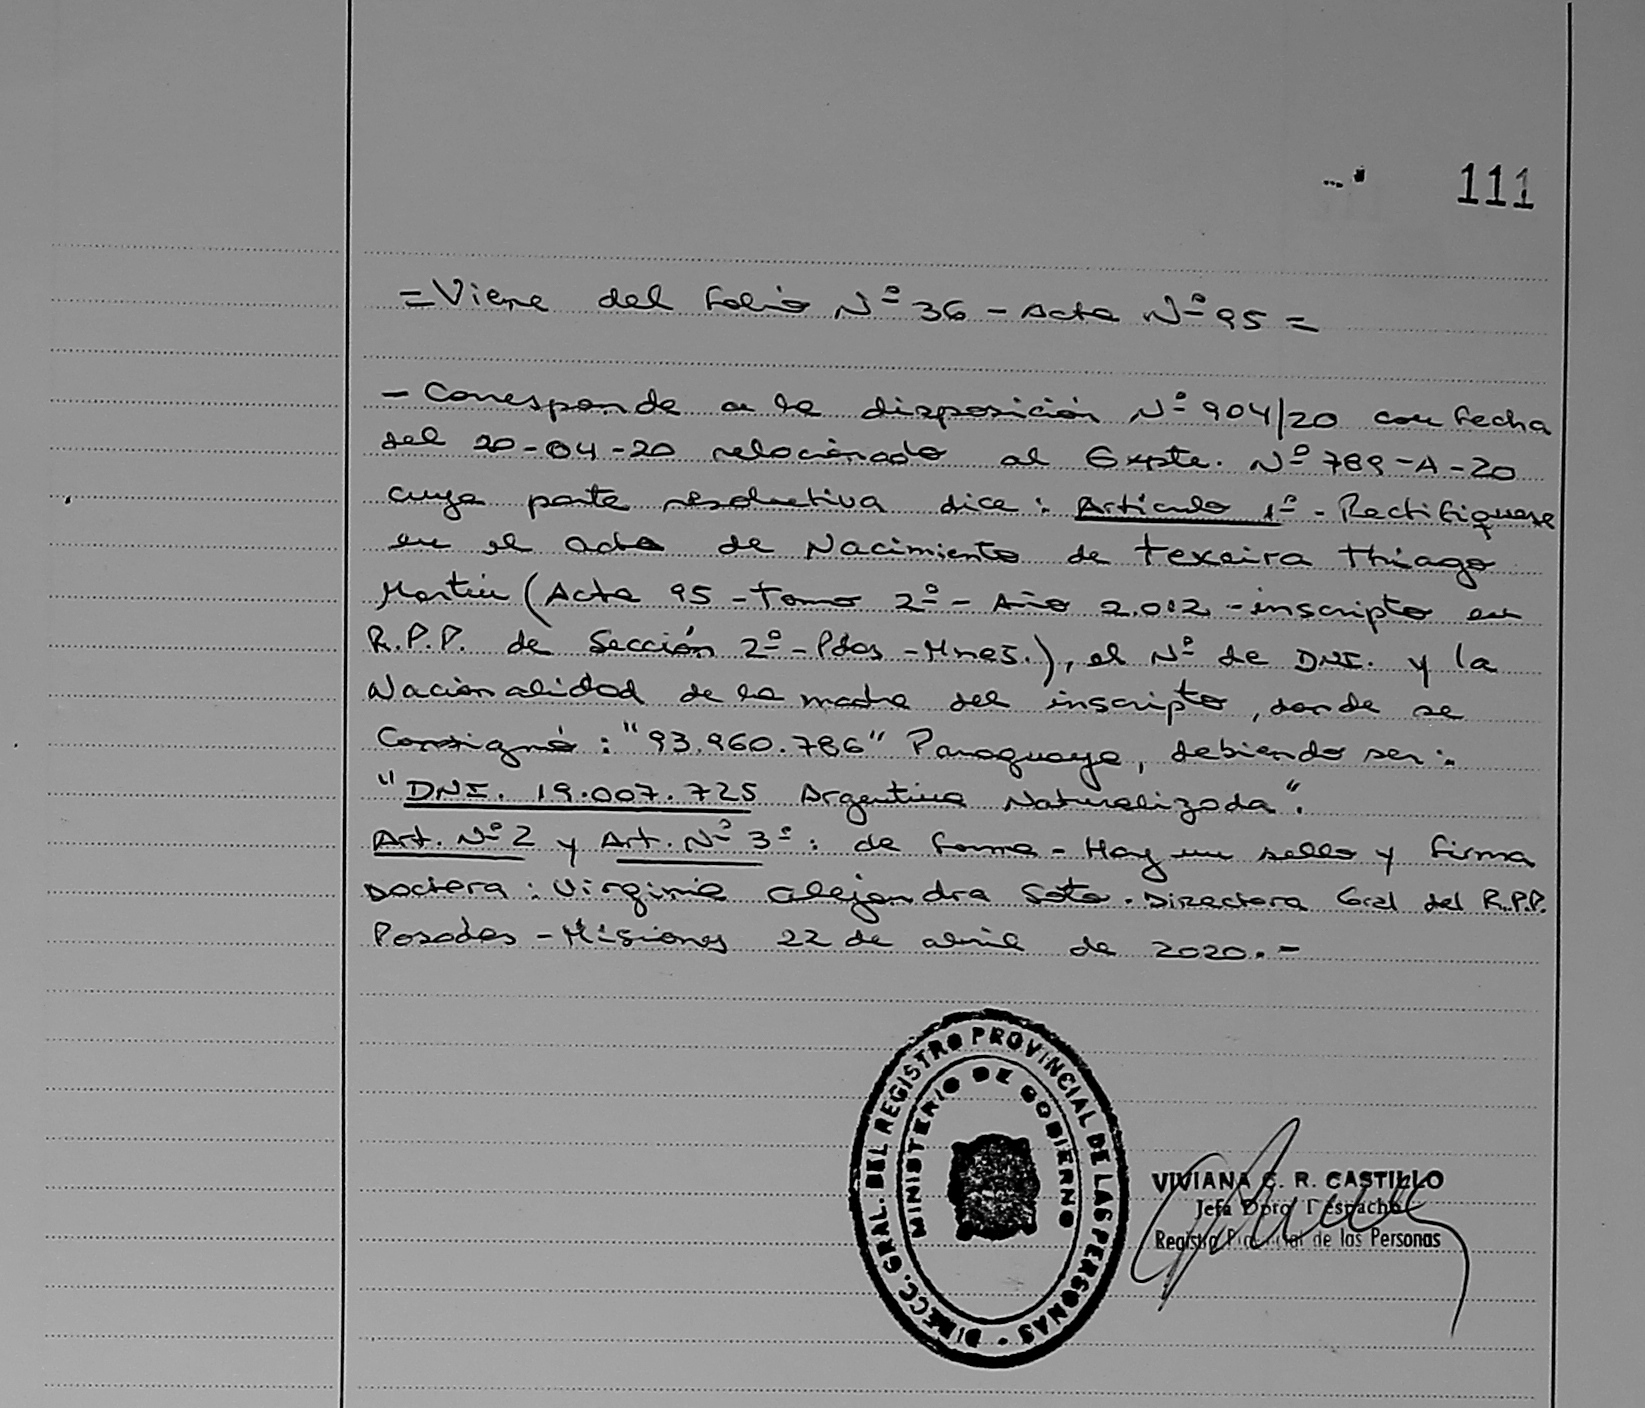 111
=Viene del Folio Nº 36 - Acta Nº 95 =
- Corresponde a la disposición Nº 904/20 con fecha
del 20-04-20 relacionado al Expte. Nº 789-A-20
cuya parte resolutiva dice: Artículo 1º - Rectifiquese
en el acta de Nacimiento de Texeira Thiago
Martin (Acta 95 - Tomo 2º - Año 2.012 - inscripto en
R.P.P. de Sección 2º - Pdas - Mnes.), el Nº de DNI. y la
Nacionalidad de la madre del inscripto, donde se
Consignó: "93.960.786" Paraguaya, debiendo ser:
"DNI. 19.007.725 Argentina Naturalizada".
Art. Nº 2 y Art. Nº 3º: de forma - Hay un sello y firma
Doctora: Virginia Alejandra Soto. Directora Gral del R.P.P.
Posadas - Misiones 22 de abril de 2020.-
DIRECC. GRAL. DEL REGISTRO PROVINCIAL DE LAS PERSONAS
MINISTERIO DE GOBIERNO
VIVIANA C. R. CASTILLO
Jefa Dpto Despacho
Registro Provincial de las Personas